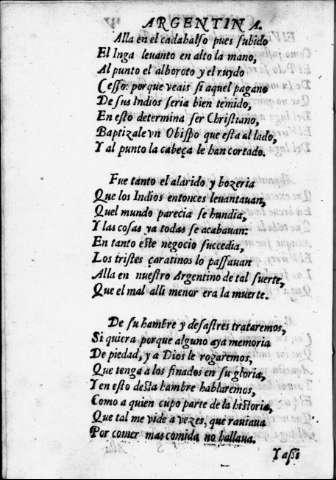 ARGENTINA.
Alla en el cadahalso pues subido
El Inga leuanto en alto la mano,
Al punto el alboroto y el ruydo
Cesso: porque veais si aquel pagano
De sus Indios seria bien temido,
En esto determina ser Christiano,
Baptizale vn Obispo que esta al lado,
Y al punto la cabeça le han cortado.
Fue tanto el alarido y bozeria
Que los Indios entonces leuantauan,
Quel mundo parecia se hundia,
Y las cosas ya todas se acabauan:
En tanto este negocio succedia,
Los tristes çaratinos lo passauan
Alla en nuestro Argentino de tal suerte,
Que el mal alli menor era la muerte.
De su hambre y desastres trataremos,
Si quiera porque alguno aya memoria
De piedad, y a Dios le rogaremos,
Que tenga a los finados en su gloria,
Y en esto desta hambre hablaremos,
Como a quien cupo parte de la historia,
Que tal me vide a vezes, que rauiaua
Por comer mas comida no hallaua.
Yassi